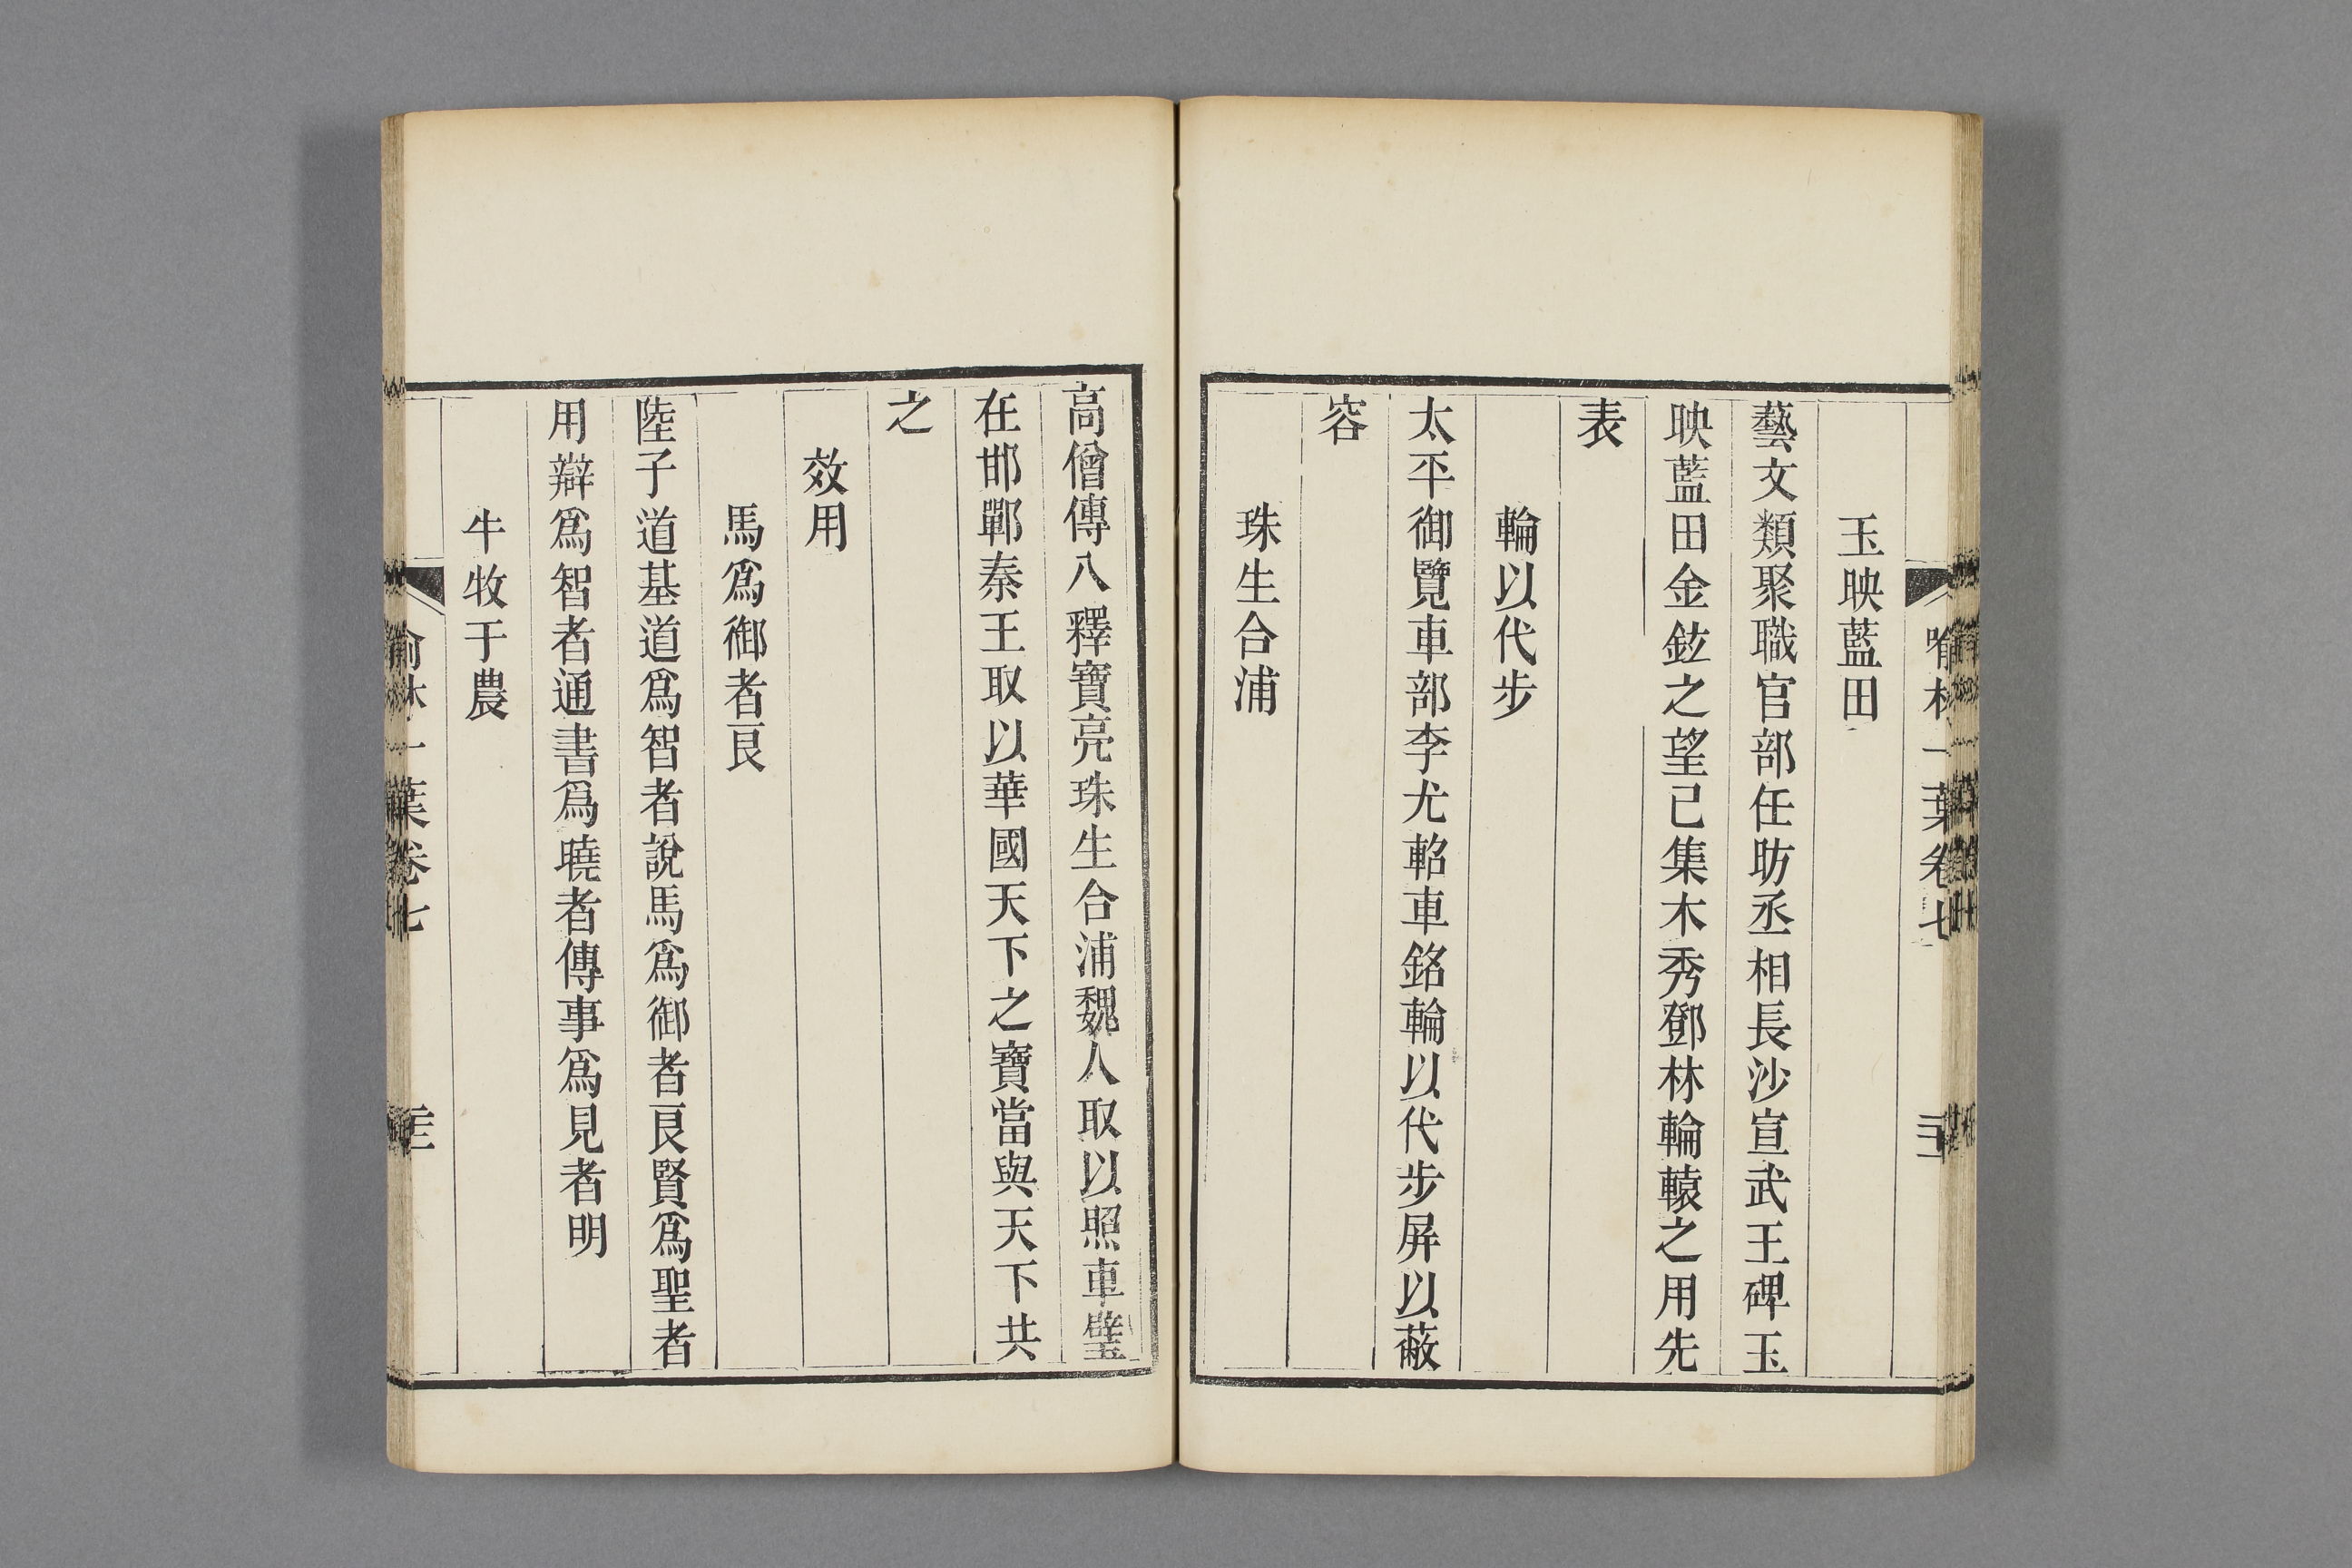 玉映藍田
藝文類聚職官部任昉丞相長沙宣武王碑玉
映藍田金鉉之望已集木秀鄧林輪轅之用先
表
輪以代步
太平御覽車部李尤軺車銘輪以代步屏以蔽
容
珠生合浦
高僧傳八釋寶亮珠生合浦魏人取以照車璧
在邯鄲秦王取以華國天下之寶當與天下共
之
效用
馬爲御者良
陸子道基道爲智者說馬爲御者良賢爲聖者
用辯爲智者通書爲曉者傳事爲見者明
牛牧于農
喻林一葉卷七